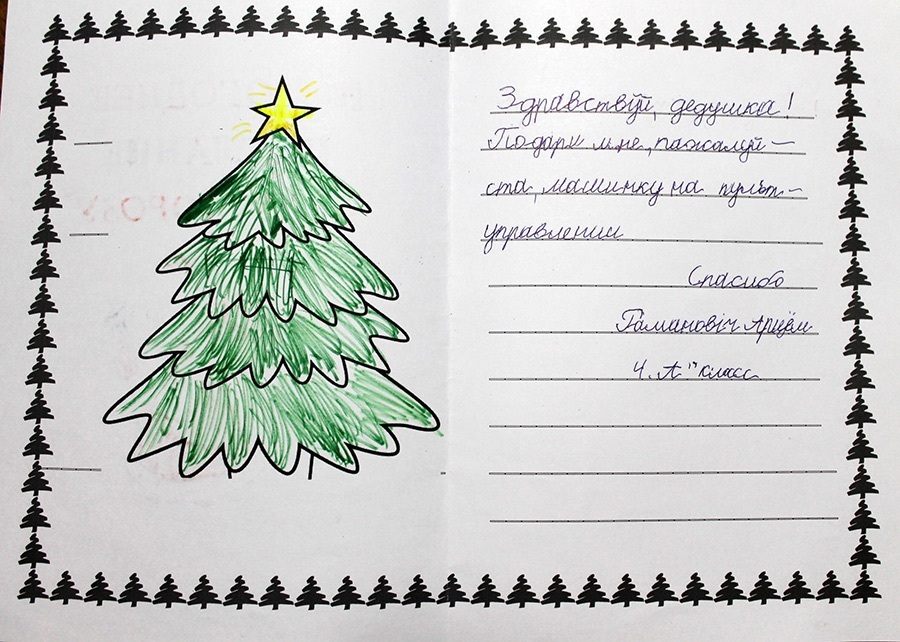 Здравствуй, дедушка!
Подари мне, пажалуй-
ста, машинку на пульт-
управлении
Спасибо
Рамановіч Арцём
4 "А" класс